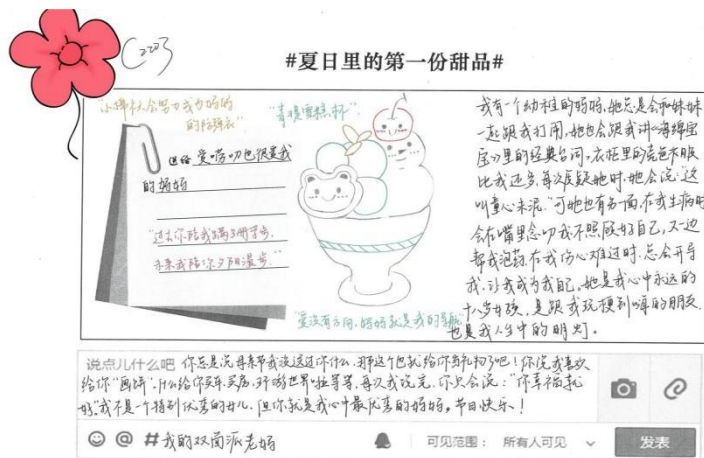 C2203
#夏日里的第一份甜品#
"小棉袄会努力成为妈妈
的防弹衣"
"青提雪糕杯"
送给 爱唠叨也很爱我
的妈妈
"过去你陪我蹒跚学步，
未来我陪你夕阳漫步。"
"爱没有方向，妈妈就是我的导航"
我有一个幼稚的妈妈，她总是会和妹妹
一起跟我打闹，她也会跟我讲《海绵宝
宝》里的经典台词，衣柜里的
比我还多，每次质疑她时，她会说："这
叫童心未泯。"可她也有另一面，在我生病时
会在嘴里念叨我不照顾好自己，又一边
帮我泡药，在我伤心难过时，总会开导
我，让我成为我自己，她是我心中永远的
十八岁女孩，是跟我玩梗到嗨的朋友，
也是我人生中的明灯。
说点儿什么吧 你总是说母亲节我没送过你什么，那这个也就给你当礼物了吧！你说我喜欢
给你"画饼"，什么给你买车，买房，环游世界啦等等，每次我说完，你只会说："你幸福就
好。"我不是一个特别优秀的女儿，但你就是我心中最优秀的妈妈。节日快乐！
@ #我的双面派老妈
可见范围： 所有人可见
发表